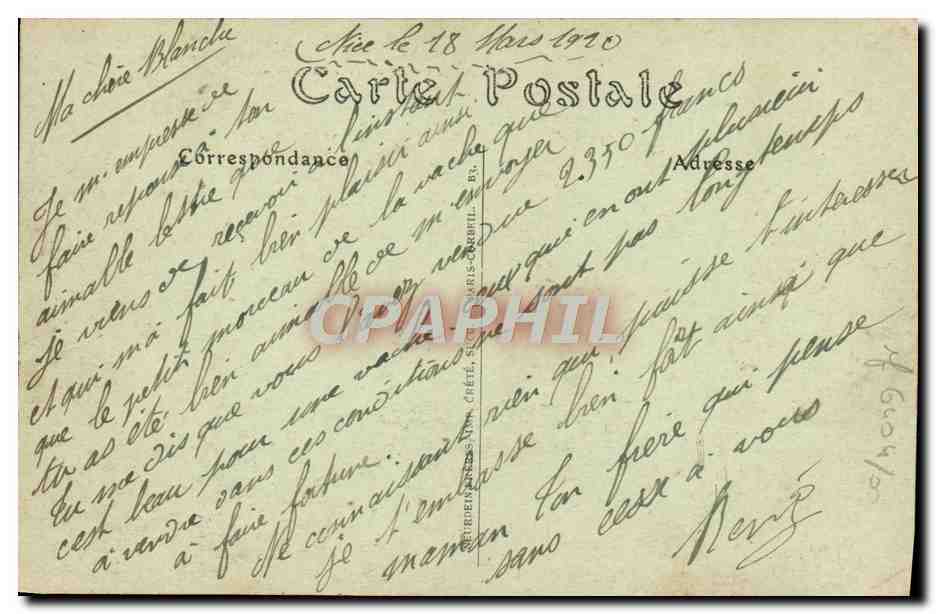 Nice le 18 Mars 1920
Carte Postale
Correspondance
Adresse
Ma chère Blanche
Je m'empresse de
faire reponse à ton
aimable lettre que
je viens de reçevoir à l'instant
et qui m'a fait bien plaisir ainsi
que le petit morceau de la vache que
tu as été bien aimable de m'envoyer
Tu me dis que vous l'avez vendue 2.350 francs
c'est beau pour une vache. ceux qui en ont plusieurs
à vendre dans ces conditions ne sont pas longtemps
à faire fortune.
Ne connaissant rien qui puisse t'interesser
je t'embrasse bien fort ainsi que
maman Ton frère qui pense
sans cesse à vous
René
NEURDEIN FRÈRES. IMP. CRÉTÉ, SUCC. PARIS-CORBEIL. B3.
CPAPHIL